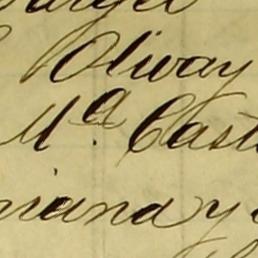 Olivay
Mª. Cast
riana y